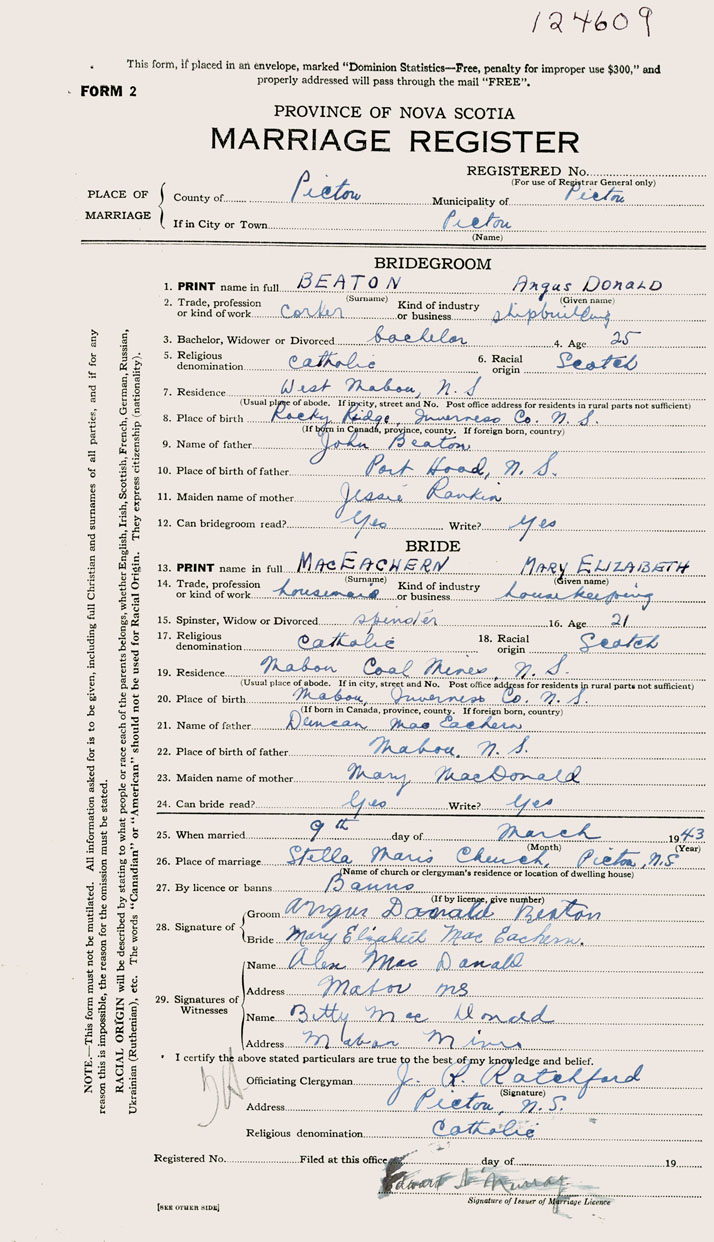 124609
This form, if placed in an envelope, marked "Dominion Statistics—Free, penalty for improper use $300," and
properly addressed will pass through the mail "FREE".
FORM 2
PROVINCE OF NOVA SCOTIA
MARRIAGE REGISTER
REGISTERED No.
(For use of Registrar General only)
PLACE OF MARRIAGE
County of Pictou Municipality of Pictou
If in City or Town Pictou
(Name)
BRIDEGROOM
1. PRINT name in full BEATON Angus DONALD
(Surname) (Given name)
2. Trade, profession or kind of work corker Kind of industry or business shipbuilding
3. Bachelor, Widower or Divorced bachelor 4. Age 25
5. Religious denomination Catholic 6. Racial origin Scotch
7. Residence West Mabou, N. S
(Usual place of abode. If in city, street and No. Post office address for residents in rural parts not sufficient)
8. Place of birth Rocky Ridge, Inverness Co. N. S.
(If born in Canada, province, county. If foreign born, country)
9. Name of father John Beaton
10. Place of birth of father Port Hood, N. S.
11. Maiden name of mother Jessie Rankin
12. Can bridegroom read? Yes Write? Yes
BRIDE
13. PRINT name in full MACEACHERN MARY ELIZABETH
(Surname) (Given name)
14. Trade, profession or kind of work housemaid Kind of industry or business housekeeping
15. Spinster, Widow or Divorced spinster 16. Age 21
17. Religious denomination Catholic 18. Racial origin Scotch
19. Residence Mabou Coal Mines, N. S.
(Usual place of abode. If in city, street and No. Post office address for residents in rural parts not sufficient)
20. Place of birth Mabou, Inverness Co. N. S.
(If born in Canada, province, county. If foreign born, country)
21. Name of father Duncan MacEachern
22. Place of birth of father Mabou, N. S.
23. Maiden name of mother Mary MacDonald
24. Can bride read? Yes Write? Yes
25. When married 9th day of March 1943
(Month) (Year)
26. Place of marriage Stella Maris Church, Pictou, N.S
(Name of church or clergyman's residence or location of dwelling house)
27. By licence or banns Banns
(If by license, give number)
28. Signature of
Groom Angus Donald Beaton
Bride Mary Elizabeth Mac Eachern.
29. Signatures of Witnesses
Name Alex Mac Donald
Address Mabou ns
Name Betty Mac Donald
Address Mabou Mines
I certify the above stated particulars are true to the best of my knowledge and belief.
Officiating Clergyman J. R. Ratchford
(Signature)
Address Pictou, N. S.
Religious denomination Catholic
Registered No. Filed at this office day of 19
Edward Murray
Signature of Issuer of Marriage Licence
[SEE OTHER SIDE]
NOTE.—This form must not be mutilated. All information asked for is to be given, including full Christian and surnames of all parties, and if for any
reason this is impossible, the reason for the omission must be stated.
RACIAL ORIGIN will be described by stating to what people or race each of the parents belongs, whether English, Irish, Scottish, French, German, Russian,
Ukrainian (Ruthenian), etc. The words "Canadian" or "American" should not be used for Racial Origin. They express citizenship (nationality).